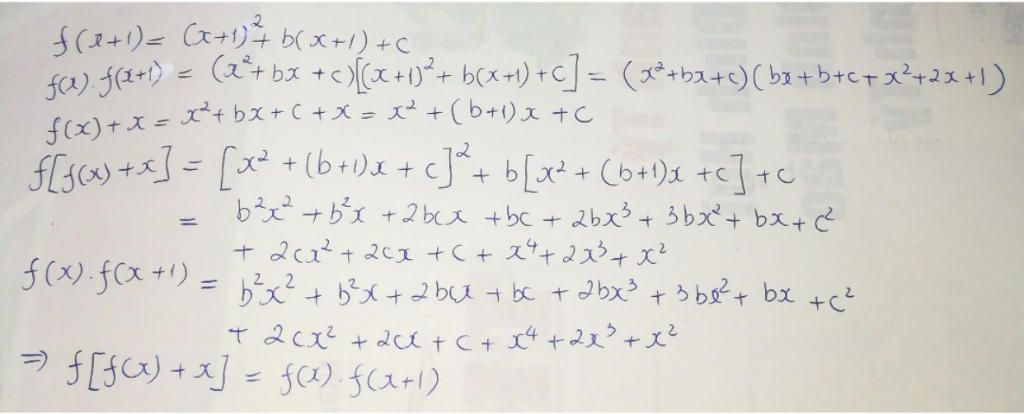 f(x+1) = (x+1)² + b(x+1) + c
f(x).f(x+1) = (x²+bx+c)[(x+1)²+b(x+1)+c] = (x²+bx+c)(bx+b+c+x²+2x+1)
f(x)+x = x²+bx+c+x = x²+(b+1)x+c
f[f(x)+x] = [x²+(b+1)x+c]² + b[x²+(b+1)x+c]+c
= b²x²+b²x+2bcx+bc+2bx³+3bx²+bx+c²
+ 2cx²+2cx+c+x⁴+2x³+x²
f(x).f(x+1) = b²x²+b²x+2bcx+bc+2bx³+3bx²+bx+c²
+ 2cx²+2cx+c+x⁴+2x³+x²
⇒ f[f(x)+x] = f(x).f(x+1)